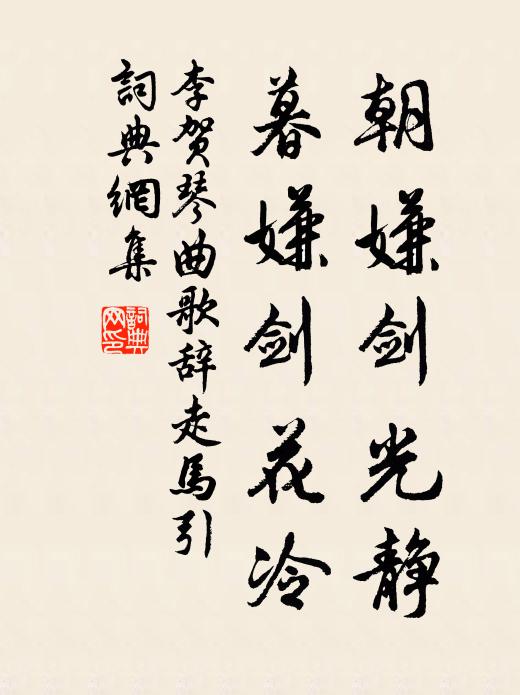 朝嫌剑光静
暮嫌剑花冷
李贺琴曲歌辞走馬引
詞典網集
詞典网印